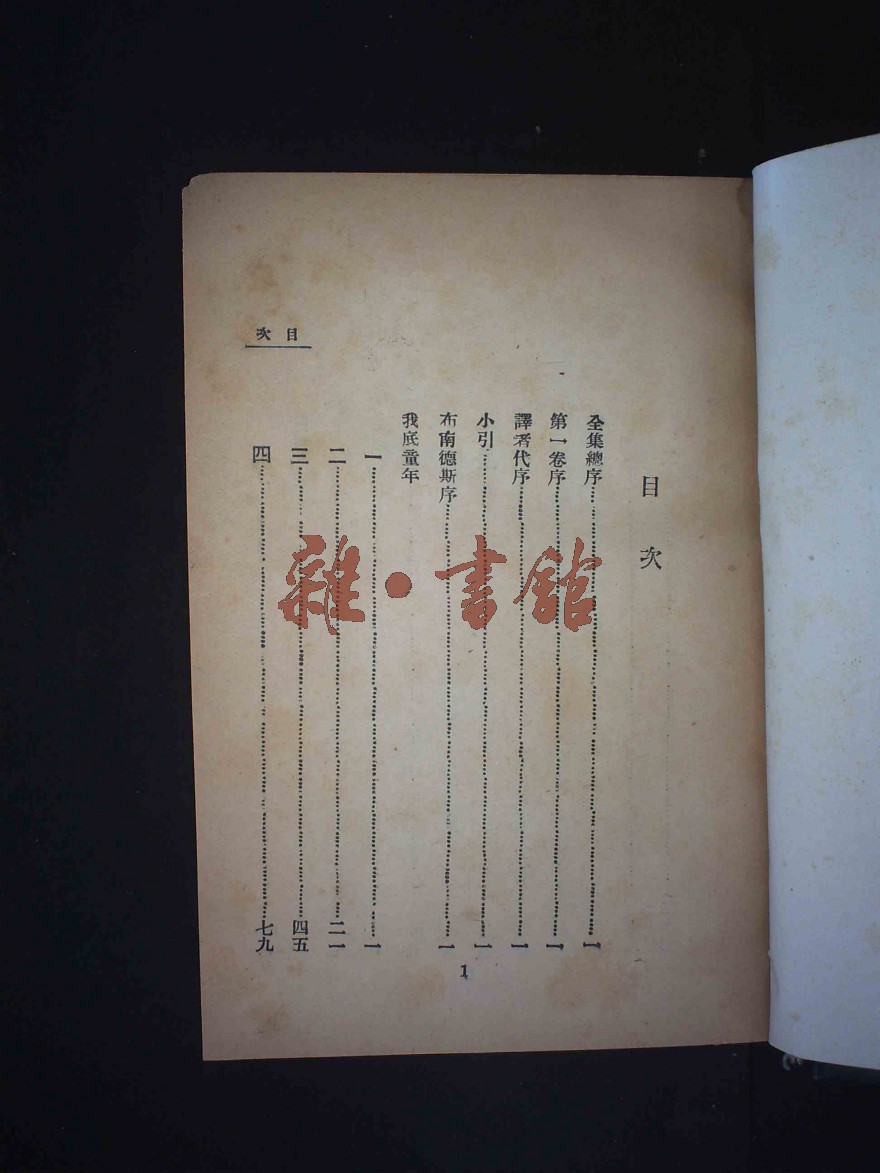 次目
目次
全集總序……一
第一卷序……一
譯者代序……一
小引……一
布南德斯序……一
我底童年
一……一
二……二一
三……四五
四……七九
1
雜·書館